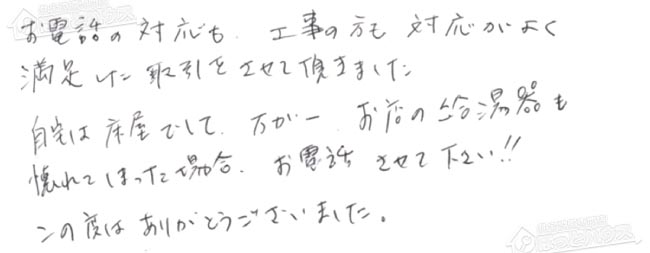 お電話の対応も、工事の方も対応がよく
満足した取引をさせて頂きました
自宅は床屋でして、万が一、お店の給湯器も
壊れてしまった場合、お電話させて下さい!!
この度はありがとうございました。